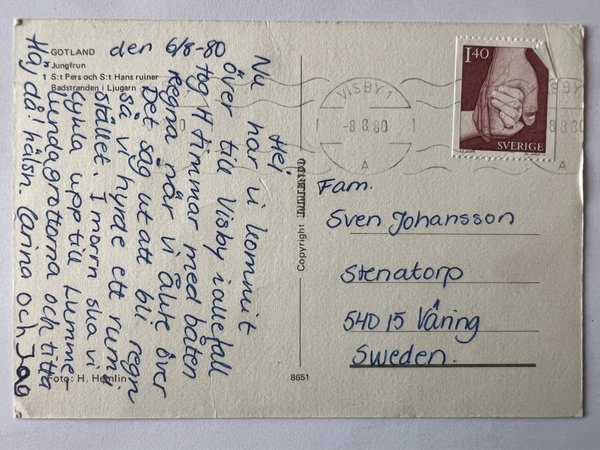 GOTLAND
Jungfrun
S:t Pers och S:t Hans ruiner
Badstranden i Ljugarn
den 6/8-80
Hej
Nu har vi kommit
över till Visby i allefall
tog 4 timmar med båten
regna når vi åkte över
Det såg ut att bli regn
så vi hyrde ett rum i
stället. I morrn ska vi
cykla upp till Lumme-
lundagrottorna och titta
Haj då! hälsn. Carina och
Foto: H. Hemlin
8651
Copyright
1 40
SVERIGE
VISBY 1
-8.8.80
A
Fam.
Sven Johansson
Stenatorp
540 15 Våring
Sweden.